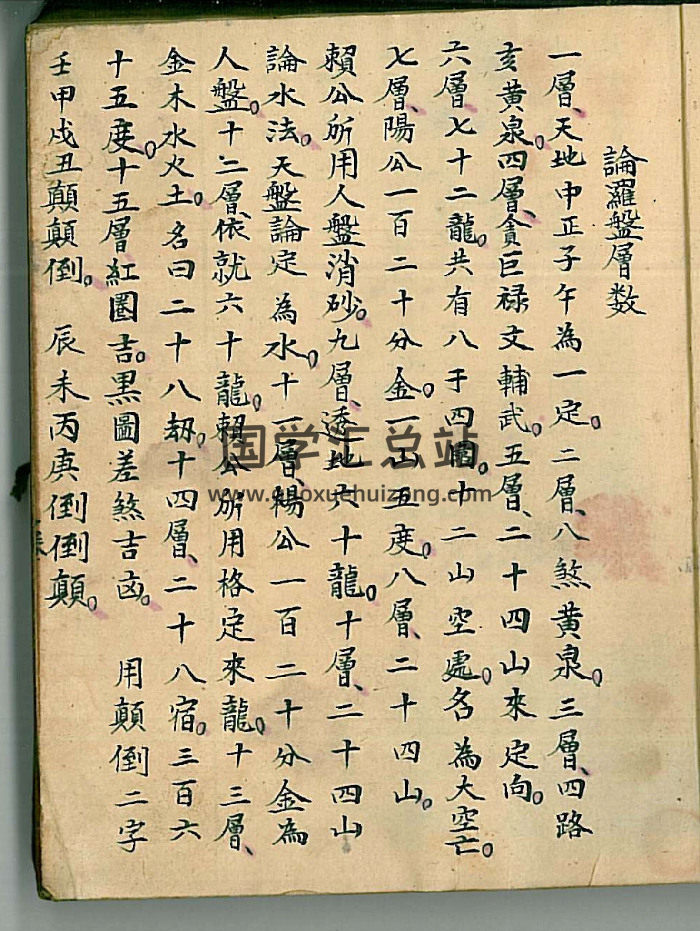 論羅盤層数
一層、天地中正子午為一定。二層、八煞黄泉。三層、四路
亥黄泉。四層、貪巨禄文輔武。五層、二十四山來定向。
六層七十二龍。共有八于四圍。十二山空處。名為大空亡。
七層、陽公一百二十分金。一山五度。八層、二十四山。
賴公所用人盤消砂。九層、透地六十龍。十層、二十四山
論水法。天盤論定為水。十一層、楊公一百二十分金為
人盤。十二層、依就六十龍。賴公所用格定來龍。十三層、
金木水火土。名曰二十八劫。十四層、二十八宿。三百六
十五度。十五層紅圈吉。黒圖差煞吉凶。用顛倒二字
壬甲戌丑顛顛倒。辰未丙庚倒倒顛。
国学汇总站
www.guoxuehuizong.com